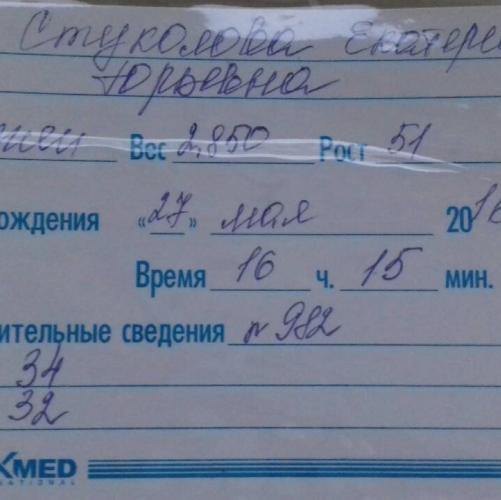 Стуколова Екатери
Юрьевна
жен Вес 2,850 Рост 51
ождения «27» мая 2016
Время 16 ч. 15 мин.
ительные сведения № 982
34
32
KMED
NATIONAL